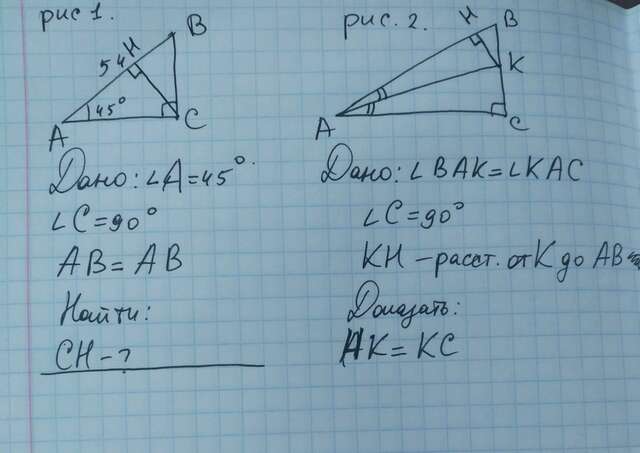 рис 1.
B
54
H
45°
A
C
Дано: ∠A=45°.
∠C=90°
AB=AB
Найти:
CH-?
рис. 2.
H
B
K
A
C
Дано: ∠BAK=∠KAC
∠C=90°
KH - расст. от K до AB
Доказать:
HK=KC